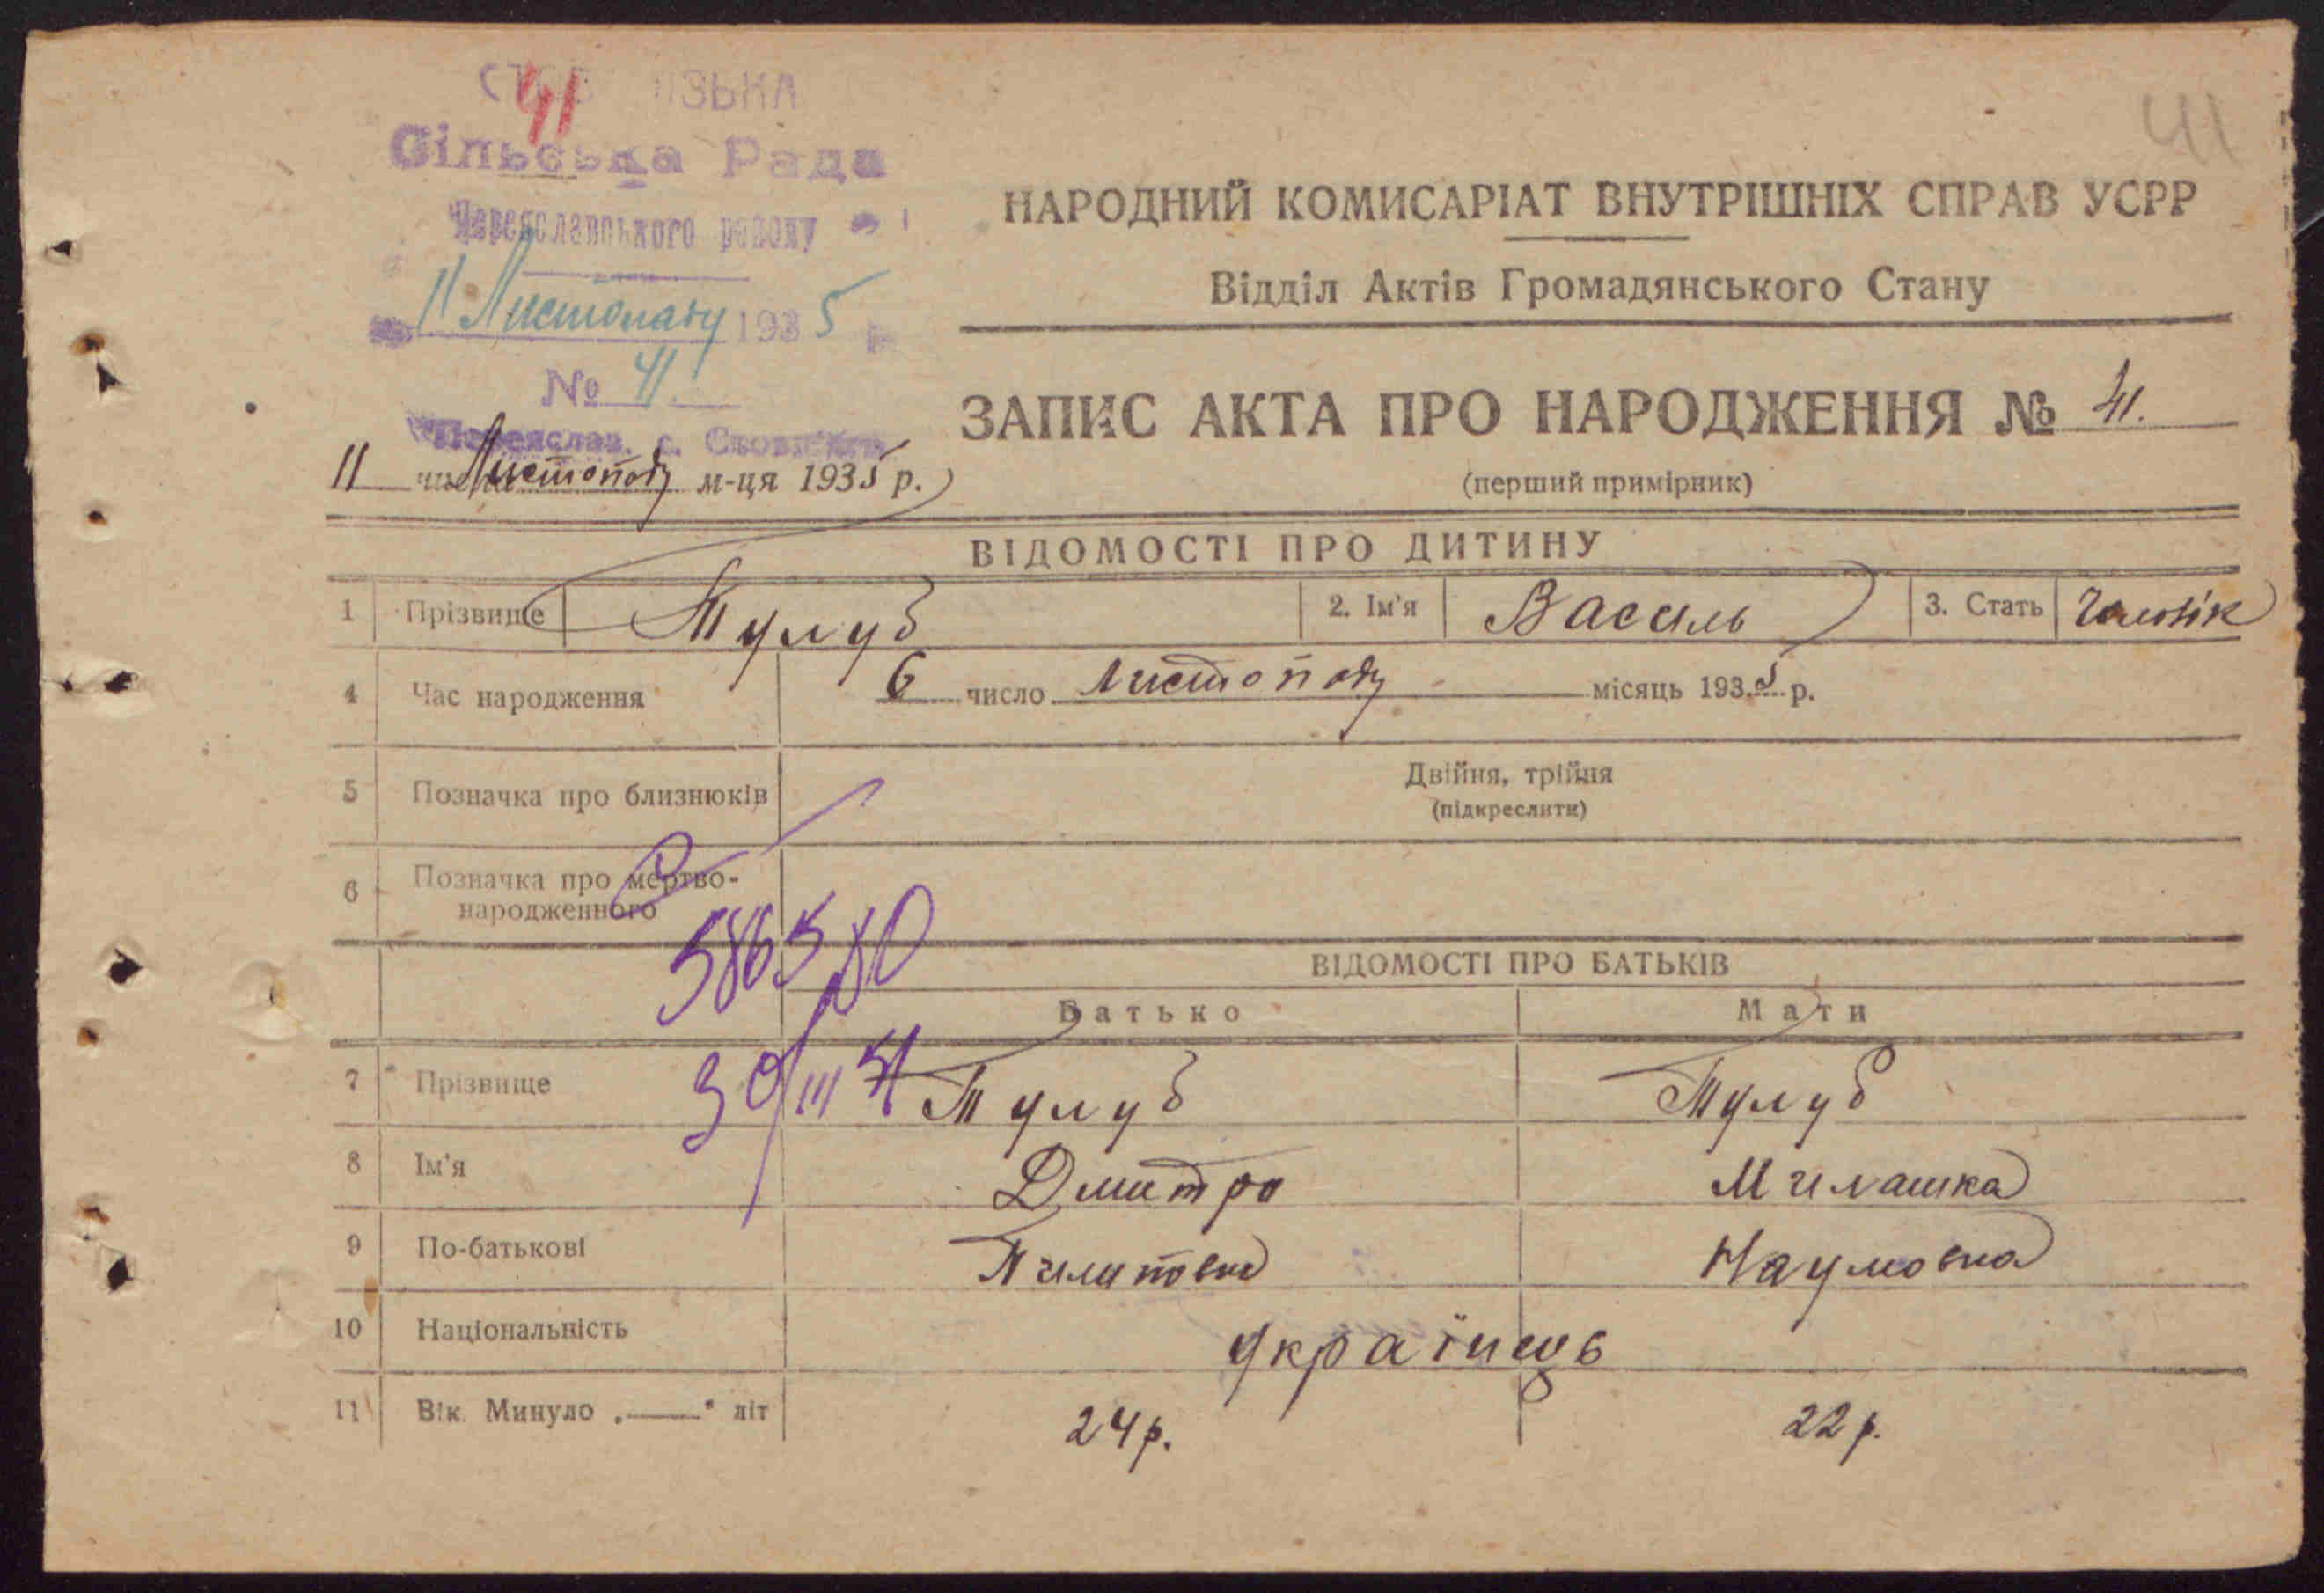 41
41
Сільська Рада
Переяславського району
11 Листопаду 1935
№ 41.
Переяслав. с.
НАРОДНИЙ КОМИСАРІАТ ВНУТРІШНІХ СПРАВ УСРР
Відділ Актів Громадянського Стану
ЗАПИС АКТА ПРО НАРОДЖЕННЯ № 41.
(перший примірник)
11 числа Листопаду м-ця 1935 р.
ВІДОМОСТІ ПРО ДИТИНУ
1 Прізвище Тулуб 2. Ім'я Василь 3. Стать Чоловік
4 Час народження 6 число Листопаду місяць 1935 р.
5 Позначка про близнюків Двійня, трійня
(підкреслити)
6 Позначка про мертво-
народженного
ВІДОМОСТІ ПРО БАТЬКІВ
Батько Мати
7 Прізвище Тулуб Тулуб
8 Ім'я Дмитро Милашка
9 По-батькові Пилиповив Наумовна
10 Національність українець
11 Вік. Минуло „——" літ 24 р. 22 р.